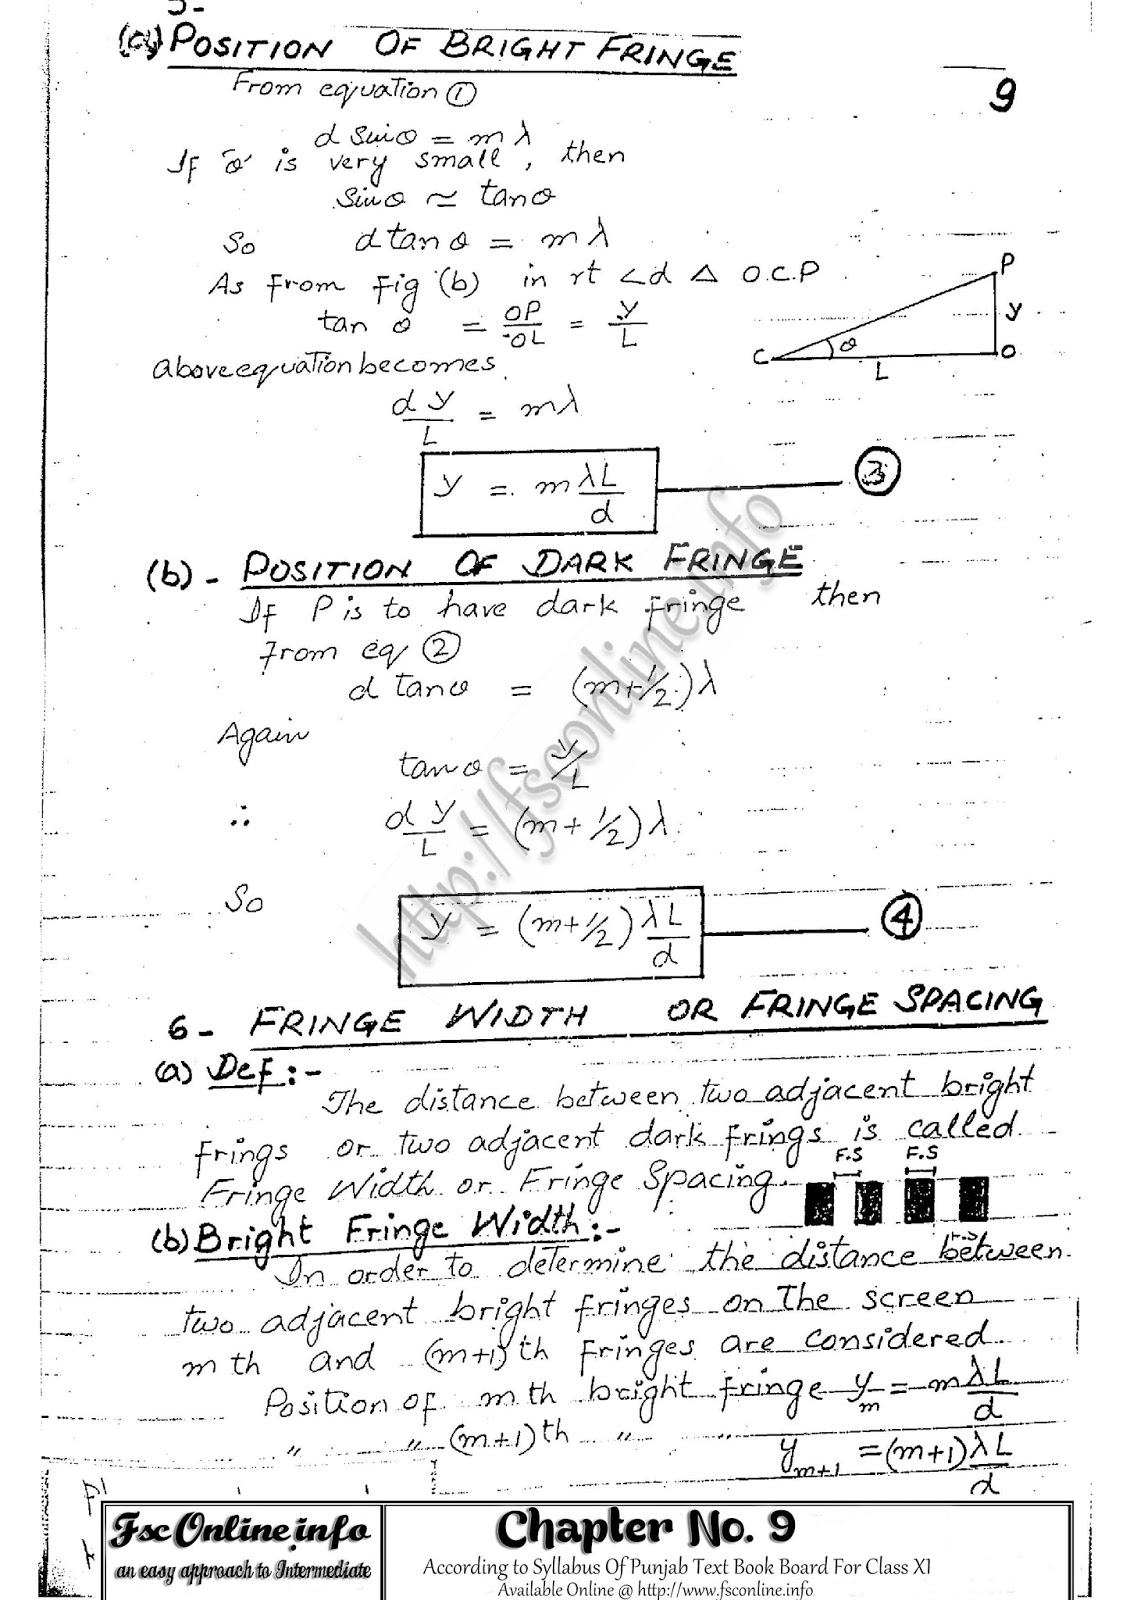 5-
(a) POSITION OF BRIGHT FRINGE
9
From equation ①
d sinθ = mλ
If 'θ' is very small, then
sinθ ≃ tanθ
So d tanθ = mλ
As from fig (b) in rt ∠d △ O.C.P
tan θ = OP/OL = y/L
P
y
C θ O
L
Above equation becomes
d y/L = mλ
y = m λL/d ③
(b) - POSITION OF DARK FRINGE
If P is to have dark fringe then
from eq ②
d tanθ = (m+1/2)λ
Again
tanθ = y/L
∴ d y/L = (m+1/2)λ
So
y = (m+1/2) λL/d ④
http://fsconline.info
6- FRINGE WIDTH OR FRINGE SPACING
(a) Def:-
The distance between two adjacent bright
frings or two adjacent dark frings is called
F.S F.S
Fringe Width or Fringe Spacing.
(b) Bright Fringe Width:-
In order to determine the distance between
two adjacent bright fringes on The screen
m th and (m+1)th fringes are considered
Position of m th bright fringe yₘ = m λL/d
" " (m+1)th " " yₘ₊₁ = (m+1) λL/d
Fsc Online.info
an easy approach to Intermediate
Chapter No. 9
According to Syllabus Of Punjab Text Book Board For Class XI
Available Online @ http://www.fsconline.info